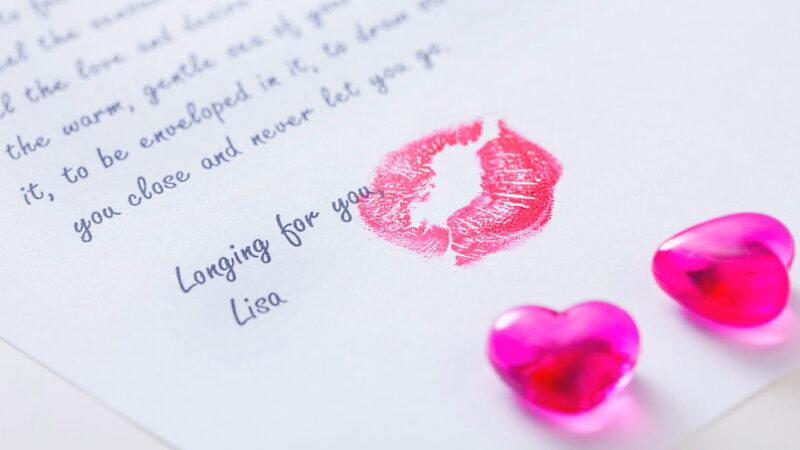 to
the
the love and desire
the warm, gentle sea of your
it, to be enveloped in it, to draw
you close and never let you go.
Longing for you,
Lisa